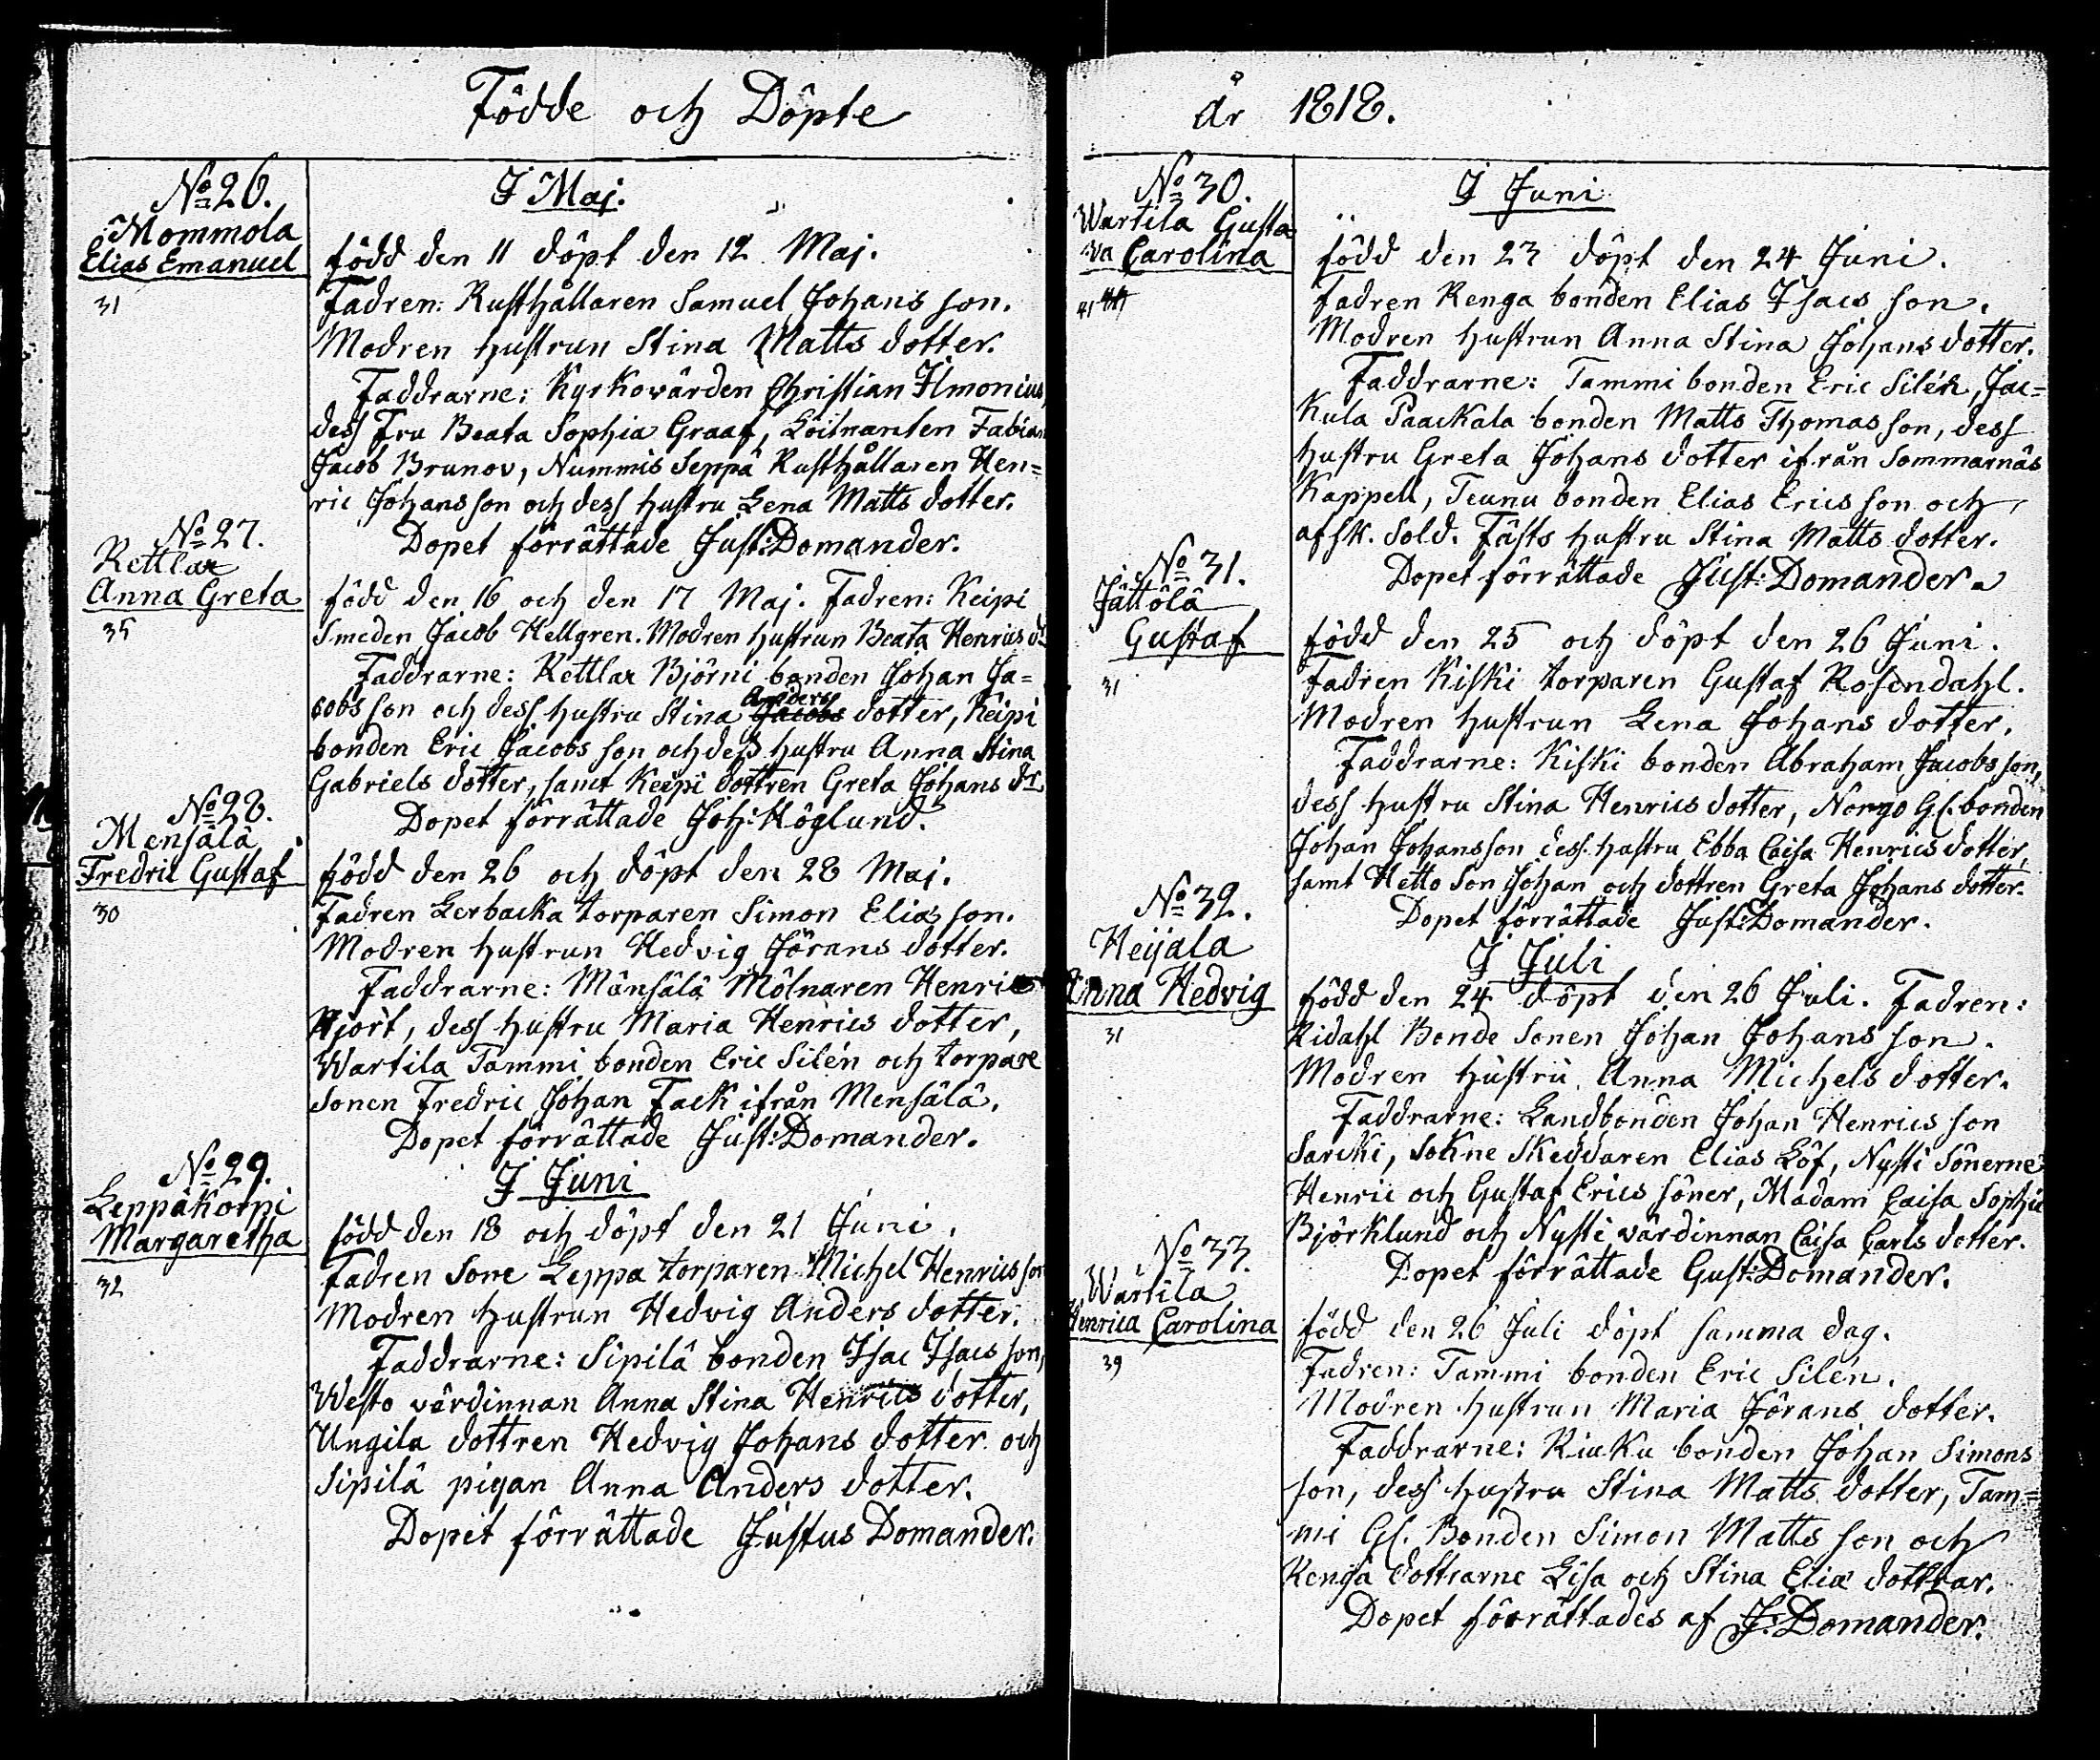 Födde och Döpte
No 26.
Mommola
Elias Emanuel
31
I Maj.
född den 11 döpt den 12 Maj.
Fadren: Rusthållaren Samuel Johans son.
Modren hustrun Stina Matts dotter.
Faddrarne: Kyrkovärden Christian Ilmonius,
dess Fru Beata Sophia Graaf, Löitnanten Fabian
Jacob Brunov, Nummis Seppä Rusthållaren Hen=
ric Johansson och dess hustru Lena Matts dotter.
Dopet förrättade Just: Domander.
No 27.
Kettlar
Anna Greta
35
född den 16 och den 17 Maj. Fadren: Keipi
Smeden Jacob Hellgren. Modren hustrun Beata Henrics dr
Faddrarne: Kettlar Björni bonden Johan Ja=
cobs son och dess hustru Stina Anders Jacobs dotter, Keipi
bonden Eric Jacobs son och dess hustru Anna Stina
Gabriels dotter, samt Keipi dottren Greta Johans dr
Dopet förrättade Joh: Höglund.
No 28.
Mensälä
Fredric Gustaf
30
född den 26 och döpt den 28 Maj.
Fadren Lerbacka torparen Simon Elias son.
Modren hustrun Hedvig Jörans dotter.
Faddrarne: Mänsälä Mölnaren Henric
Hjort, dess hustru Maria Henrics dotter,
Wartila Tammi bonden Eric Silén och torpare
Sonen Fredric Johan Fack ifrån Mensälä.
Dopet förrättade Just: Domander.
I Juni
No 29.
Leppäkorpi
Margaretha
32
född den 18 och döpt den 21 Juni.
Fadren Sone Leppa torparen Michel Henrics son
Modren hustrun Hedvig Anders dotter.
Faddrarne: Sipilä bonden Isac Isacs son,
Westo värdinnan Anna Stina Henrics dotter,
Ungila dottren Hedvig Johans dotter och
Sipilä pigan Anna Anders dotter.
Dopet förrättade Justus Domander.
År 1818.
No 30.
Wartila Gusta
va Carolina
41
I Juni
född den 23 döpt den 24 Juni.
Fadren Renga bonden Elias Isacs son.
Modren hustrun Anna Stina Johans dotter.
Faddrarne: Tammi bonden Eric Silén, Jac=
kula Paackala bonden Matts Thomas son, dess
hustru Greta Johans dotter ifrån Sommarnäs
Kappell, Teunu bonden Elias Erics son och
afsk. Sold. Fästs hustru Stina Matts dotter.
Dopet förrättade Just: Domander.
No 31.
Jättölä
Gustaf
31
född den 25 och döpt den 26 Juni.
Fadren Kiski torparen Gustaf Rosendahl.
Modren hustrun Lena Johans dotter.
Faddrarne: Kiski bonden Abraham Jacobs son,
dess hustru Stina Henrics dotter, Norgo Gl. bonden
Johan Johansson dess hustru Ebba Caisa Henrics dotter,
samt Hetto Son Johan och dottren Greta Johans dotter.
Dopet förrättade Just: Domander.
I Juli
No 32.
Heijala
Anna Hedvig
31
född den 24 döpt den 26 Juli. Fadren:
Ridahl Bonde Sonen Johan Johans son.
Modren hustru Anna Michels dotter.
Faddrarne: Landbonden Johan Henrics son
Sarcki, Sokne Skeddaren Elias Löf, Nysti Sönerne
Henric och Gustaf Erics söner, Madam Caisa Sophie
Björklund och Nysti värdinnan Caisa Carls dotter.
Dopet förrättade Gust: Domander.
No 33.
Wartila
Henrica Carolina
39
född den 26 Juli döpt samma dag.
Fadren: Tammi bonden Eric Silén.
Modren hustrun Maria Jörans dotter.
Faddrarne: Riuku bonden Johan Simons
son, dess hustru Stina Matts dotter, Tam=
mi Gl. Bonden Simon Matts son och
Renga dottrarne Lisa och Stina Eliæ dottrar.
Dopet förrättades af J: Domander.